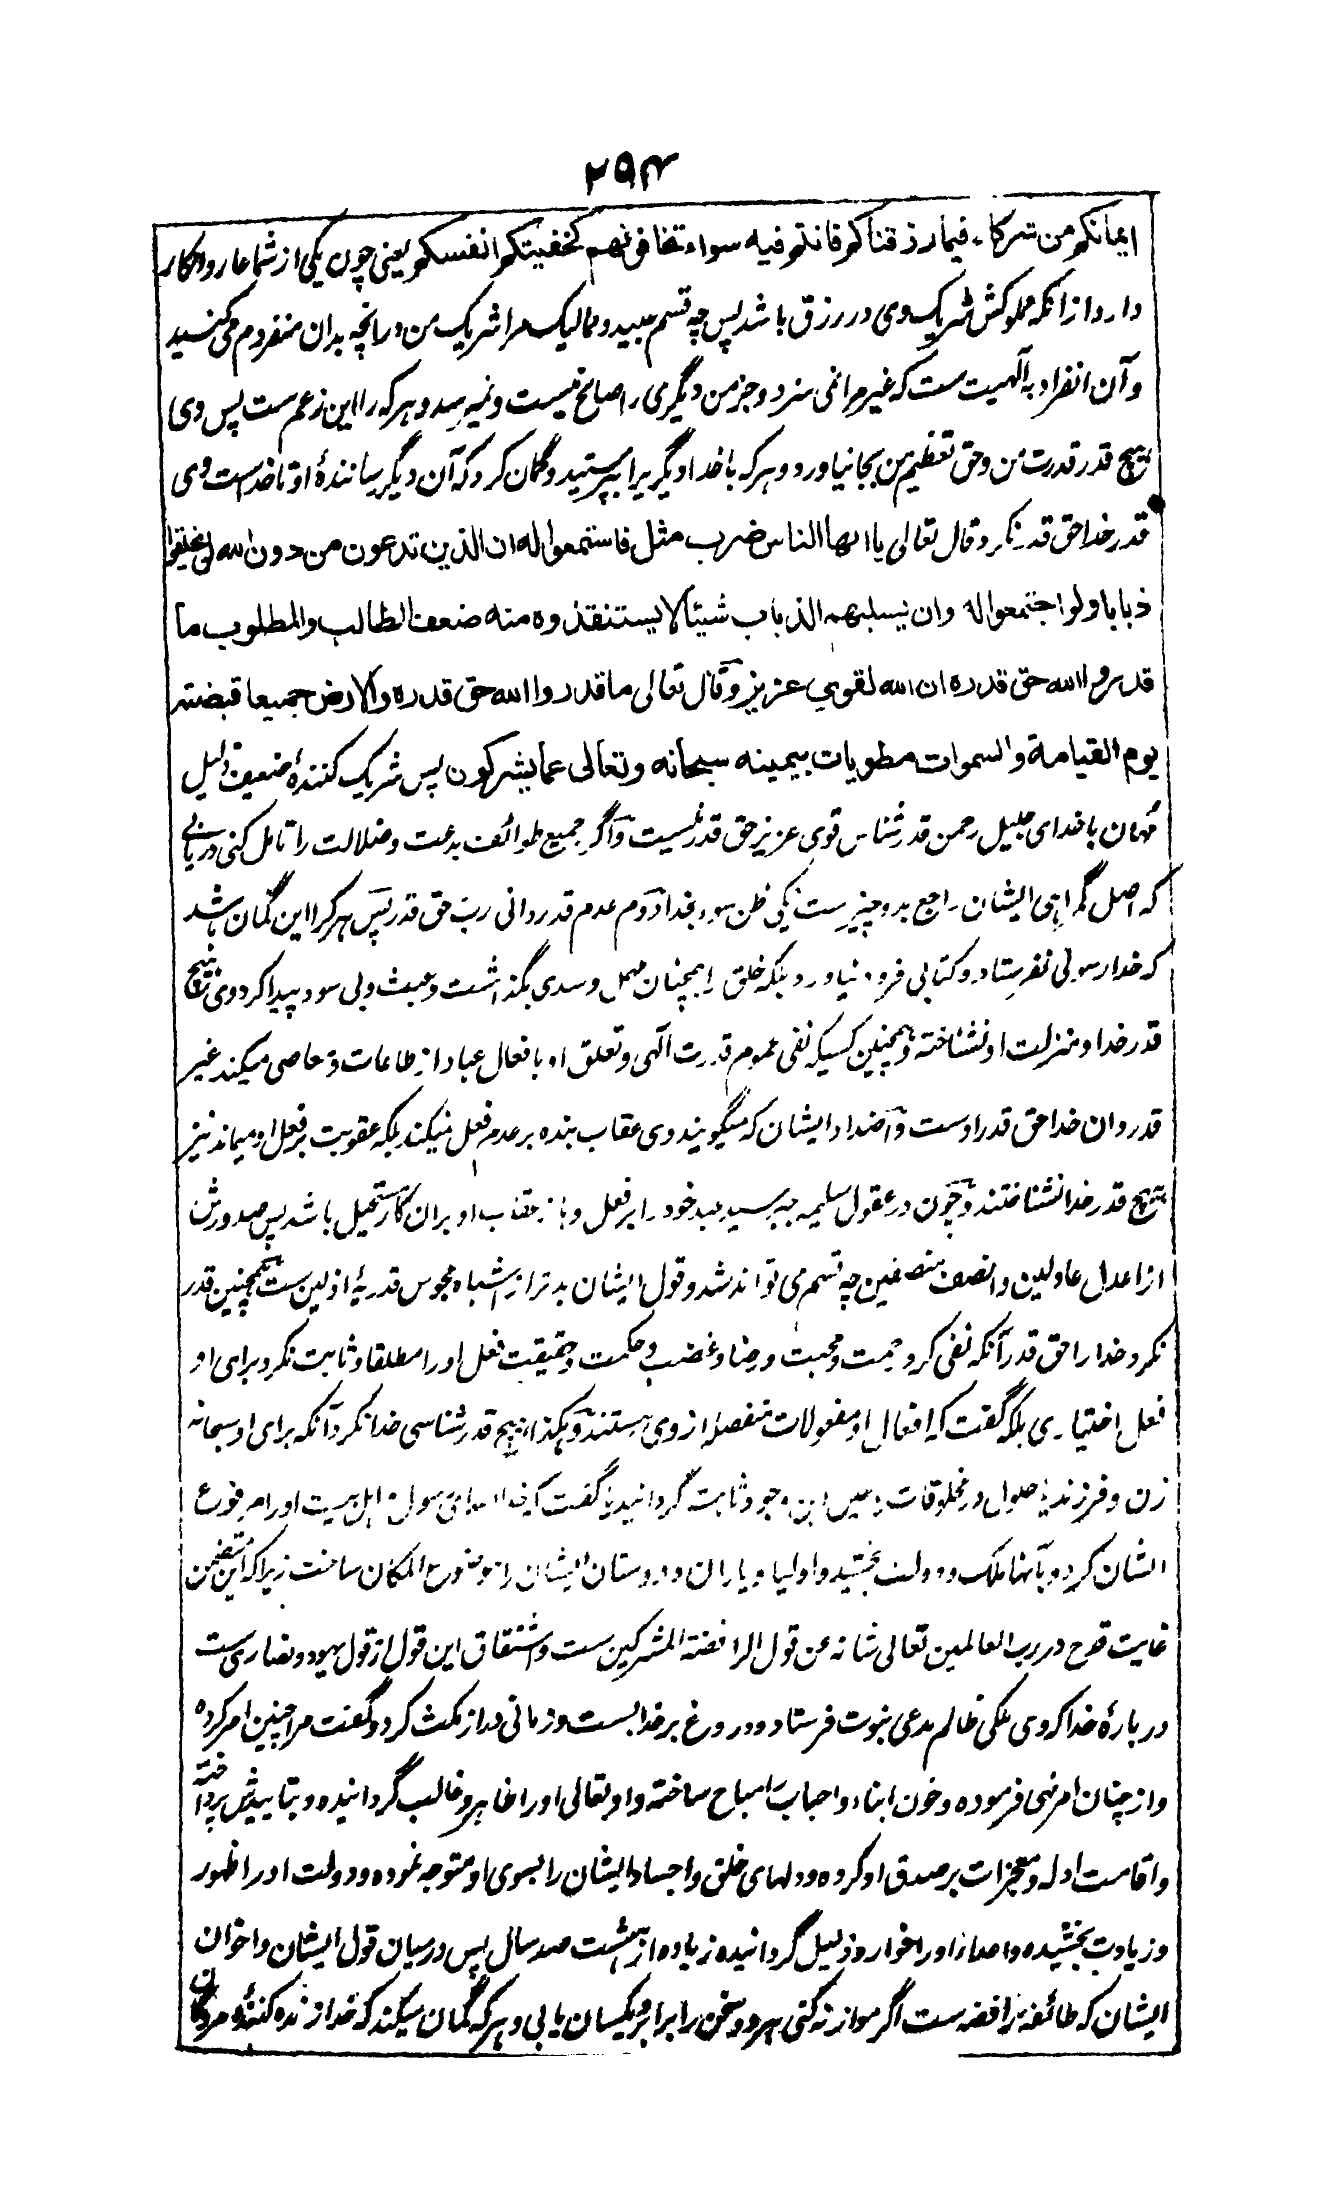 ۲۹۴
ایمانکم من شرکاء فیما رزقناکم فانتم فیه سواء تخافونهم کخیفتکم انفسکم یعنی چون یکی از شما عار و انکار
دارد از انکه مملوکش شریک وی در رزق باشد پس چه قسم عبید و ممالیک مرا شریک من درانچه بدان منفردم می کنید
و آن انفراد به آلهیت ست که غیر مرا نمی سزد و جز من دیگری را صالح نیست و نمیرسد و هر که را این زعم ست پس وی
هیچ قدر قدرت من و حق تعظیم من بجا نیاورد و هر که با خدا دیگریرا بپرستید و گمان کرد که آن دیگر رسانندهٔ او تا خداست وی
قدر خدا حق قدر نکرد قال تعالی یا ایها الناس ضرب مثل فاستمعوا له ان الذین تدعون من دون الله لن یخلقوا
ذبابا ولو اجتمعوا له وان یسلبهم الذباب شیئا لا یستنقذوه منه ضعف الطالب والمطلوب ما
قدروا الله حق قدره ان الله لقوی عزیز وقال تعالی ما قدروا الله حق قدره والارض جمیعا قبضته
یوم القیامة والسموات مطویات بیمینه سبحانه وتعالی عما یشرکون پس شریک کنندهٔ ضعیف ذلیل
مهان با خدای جلیل رحمن قدر شناس قوی عزیز حق قدر نیست و اگر جمیع طوائف بدعت و ضلالت را تامل کنی دریابی
که اصل گمراهی ایشان راجع بدو چیز ست یکی ظن سوء بخدا دوم عدم قدردانی رب حق قدر پس هر کرا این گمان باشد
که خدا رسولی نفرستاد و کتابی فرود نیاورد بلکه خلق را همچنان مهمل و سدی بگذاشت و عبث و بی سود پیدا کرد وی هیچ
قدر خدا و منزلت او نشناخته و همچنین کسیکه نفی عموم قدرت آلهی و تعلق او بافعال عباد از طاعات و معاصی میکند غیر
قدردان خدا حق قدر اوست و اضداد ایشان که میگویند وی عقاب بنده بر عدم فعل میکند بلکه عقوبت بر فعل او میماند نیز
هیچ قدر خدا نشناختند و چون در عقول سلیمه جبر سید عبد خود را بر فعل و باز عقاب او بران کار مستحیل باشد پس صدورش
از اعدل عادلین و انصف منصفین چه قسم می تواند شد و قول ایشان بدتر از اشباه مجوس قدریهٔ اذلین ست همچنین قدر
نکرد خدا را حق قدر آنکه نفی کرد رحمت و محبت و رضا و غضب و حکمت و حقیقت فعل او را مطلقا و ثابت نکرد برای او
فعل اختیاری بلکه گفت که افعال او مفعولات منفصله از وی هستند و همکذا هیچ قدر شناسی خدا نکرد آنکه برای او سبحانه
زن و فرزند یا حلول در مخلوقات وجود ثابت گردانید یا گفت که رسول و اهل بیت او را مرفوع
الشان کرد و بآنها ملک و دولت بخشید و اولیا و یاران و دوستان ایشان را موضوع المکان ساخت زیرا که این متضمن
غایت قدح در رب العالمین تعالی شانه عن قول الرافضة المشرکین ست و اشتقاق این قول از قول یهود و نصاری ست
دربارهٔ خدا که وی ملکی ظالم مدعی نبوت فرستاد و دروغ بر خدا بست و زمانی دراز مکث کرد و گفت مرا چنین امر کرده
و از چنان امر نهی فرموده و خون ابناء و احباب را مباح ساخته و او تعالی او را ظاهر و غالب گردانیده و بتاییدش پرداخته
و اقامت ادله و معجزات بر صدق او کرده و دلهای خلق و اجساد ایشان را بسوی او متوجه نموده و دولت او را ظهور
و زیادت بخشیده و اعداء او را خوار و ذلیل گردانیده زیاده از هشت صد سال پس درمیان قول ایشان و اخوان
ایشان که طائفهٔ رافضه ست اگر موازنه کنی هر دو سخن را برابر و یکسان یابی و هر که گمان میکند که خدا زنده کنندهٔ مردگان